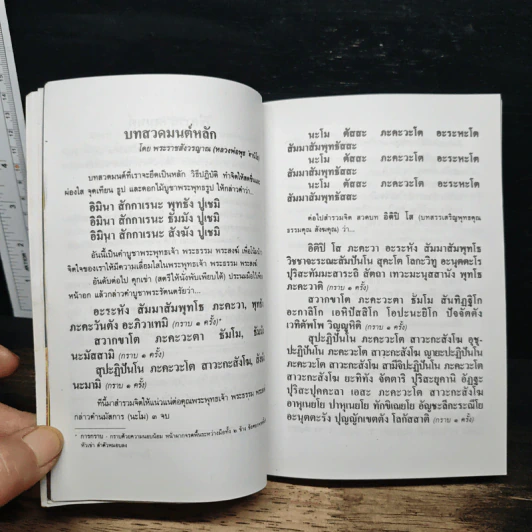 บทสวดมนต์หลัก
โดย พระราชสังวรญาณ (หลวงพ่อพุธ ฐานิโย)
บทสวดมนต์ที่เราจะยึดเป็นหลัก วิธีปฏิบัติ ทำจิตให้สดชื่น
ผ่องใส จุดเทียน ธูป และดอกไม้บูชาพระพุทธรูป ให้กล่าวคำว่า.
อิมินา สักกาเรนะ พุทธัง ปูเชมิ
อิมินา สักกาเรนะ ธัมมัง ปูเชมิ
อิมินา สักกาเรนะ สังฆัง ปูเชมิ
อันนี้เป็นคำบูชาพระพุทธเจ้า พระธรรม พระสงฆ์ เพื่อ
จิตใจของเราให้มีความเลื่อมใสในพระพุทธเจ้า พระธรรม
อันดับต่อไป คุกเข่า (สตรีให้นั่งพับเพียบได้) ประนมมือไว้
หน้าอก แล้วกล่าวคำบูชาพระรัตนตรัยว่า...
อะระหัง สัมมาสัมพุทโธ ภะคะวา, พุทธัง
ภะคะวันตัง อะภิวาเทมิ (กราบ ๑ ครั้ง)*
สวากขาโต ภะคะวะตา ธัมโม, ธัมมัง
นะมัสสามิ (กราบ ๑ ครั้ง)
สุปะฏิปันโน ภะคะวะโต สาวะกะสังโฆ, สังฆัง
นะมามิ (กราบ ๑ ครั้ง)
ที่นี้มาสำรวมจิตให้แน่วแน่ต่อคุณพระพุทธเจ้า พระธรรม
กล่าวคำนมัสการ (นะโม) ๓ จบ
* การกราบ : กราบด้วยความนอบน้อม หน้าผากจรดพื้นระหว่างมือทั้ง ๒ ข้าง
หัวเข่า ลำตัวหมอบลง
นะโม ตัสสะ ภะคะวะโต อะระหะโต
สัมมาสัมพุทธัสสะ
นะโม ตัสสะ ภะคะวะโต อะระหะโต
สัมมาสัมพุทธัสสะ
นะโม ตัสสะ ภะคะวะโต อะระหะโต
สัมมาสัมพุทธัสสะ
ต่อไปสำรวมจิต สวดบท อิติปิ โส (บทสรรเสริญพุทธคุณ
ธรรมคุณ สังฆคุณ) ว่า...
อิติปิ โส ภะคะวา อะระหัง สัมมาสัมพุทโธ
วิชชาจะระณะสัมปันโน สุคะโต โลกะวิทู อะนุตตะโร
ปุริสะทัมมะสาระถิ สัตถา เทวะมะนุสสานัง พุทโธ
ภะคะวาติ (กราบ ๑ ครั้ง)
สวากขาโต ภะคะวะตา ธัมโม สันทิฏฐิโก
อะกาลิโก เอหิปัสสิโก โอปะนะยิโก ปัจจัตตัง
เวทิตัพโพ วิญญูหิติ (กราบ ๑ ครั้ง)
สุปะฏิปันโน ภะคะวะโต สาวะกะสังโฆ อุชุ-
ปะฏิปันโน ภะคะวะโต สาวะกะสังโฆ ญายะปะฏิปันโน
ภะคะวะโต สาวะกะสังโฆ สามีจิปะฏิปันโน ภะคะวะโต
สาวะกะสังโฆ ยะทิทัง จัตตาริ ปุริสะยุคานิ อัฏฐะ
ปุริสะปุคคะลา เอสะ ภะคะวะโต สาวะกะสังโฆ
อาหุเนยโย ปาหุเนยโย ทักขิเณยโย อัญชะลีกะระณีโย
อะนุตตะรัง ปุญญักเขตตัง โลกัสสาติ (กราบ ๑ ครั้ง)